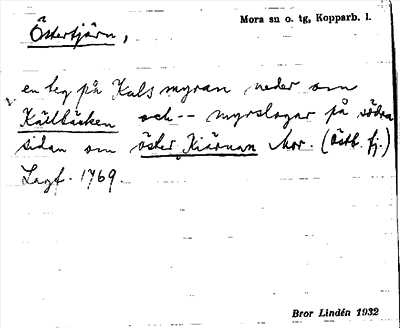 Östertjärn,
Mora sn o. tg, Kopparb. l.
en teg på Kalsmyran neder om
Källbäcken och -- myrslogar på södra
sidan om öster Kiärnan Mor. (Östb. fj.)
Lagf. 1769.
Bror Lindén 1932